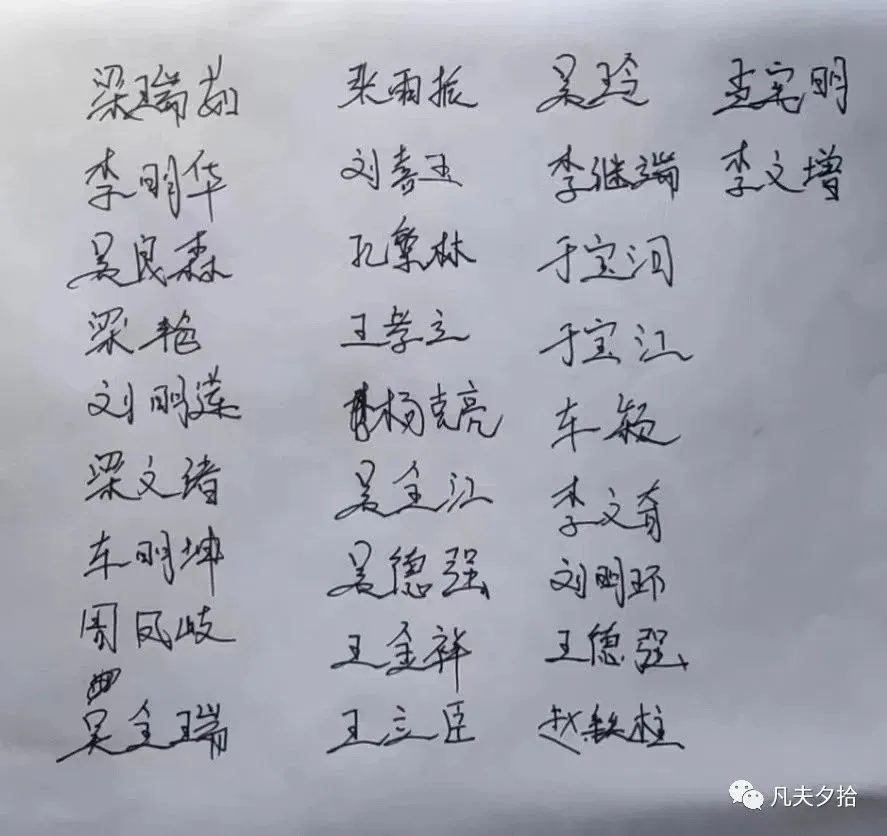 梁瑞茹 张雨振 吴玲 孟宪明
李明华 刘喜玉 李继端 李文增
吴良森 孔繁林 于宝泪
梁艳 王孝立 于宝江
刘明莲 杨克亮 车颖
梁文绪 吴全江 李文育
车明坤 吴德强 刘明环
周凤岐 王金祥 王德强
吴全瑞 王立臣 赵铁柱
凡夫夕拾